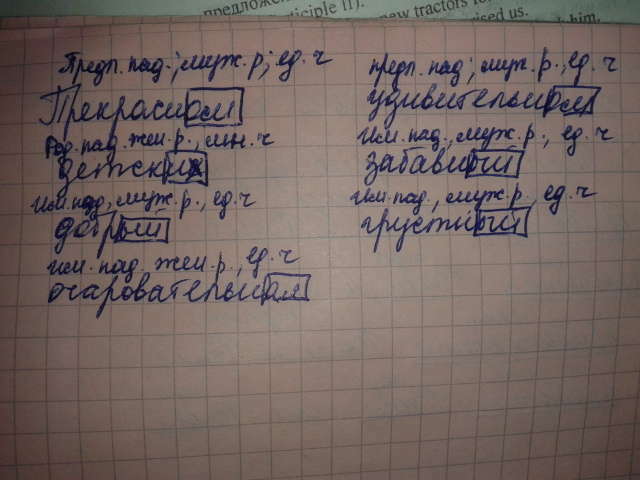 предлож
ciple II).
new tractors fo
ised us.
him.
Предл. пад.; муж. р; ед. ч
Прекрасном
Род. пад. жен. р., мн. ч
детских
Им. пад, муж. р., ед. ч
добрый
Им. пад, жен. р., ед. ч
очаровательная
предл. пад; муж. р., ед. ч
удивительном
Им. пад., муж. р., ед. ч
забавный
Им. пад., муж. р., ед. ч
грустный